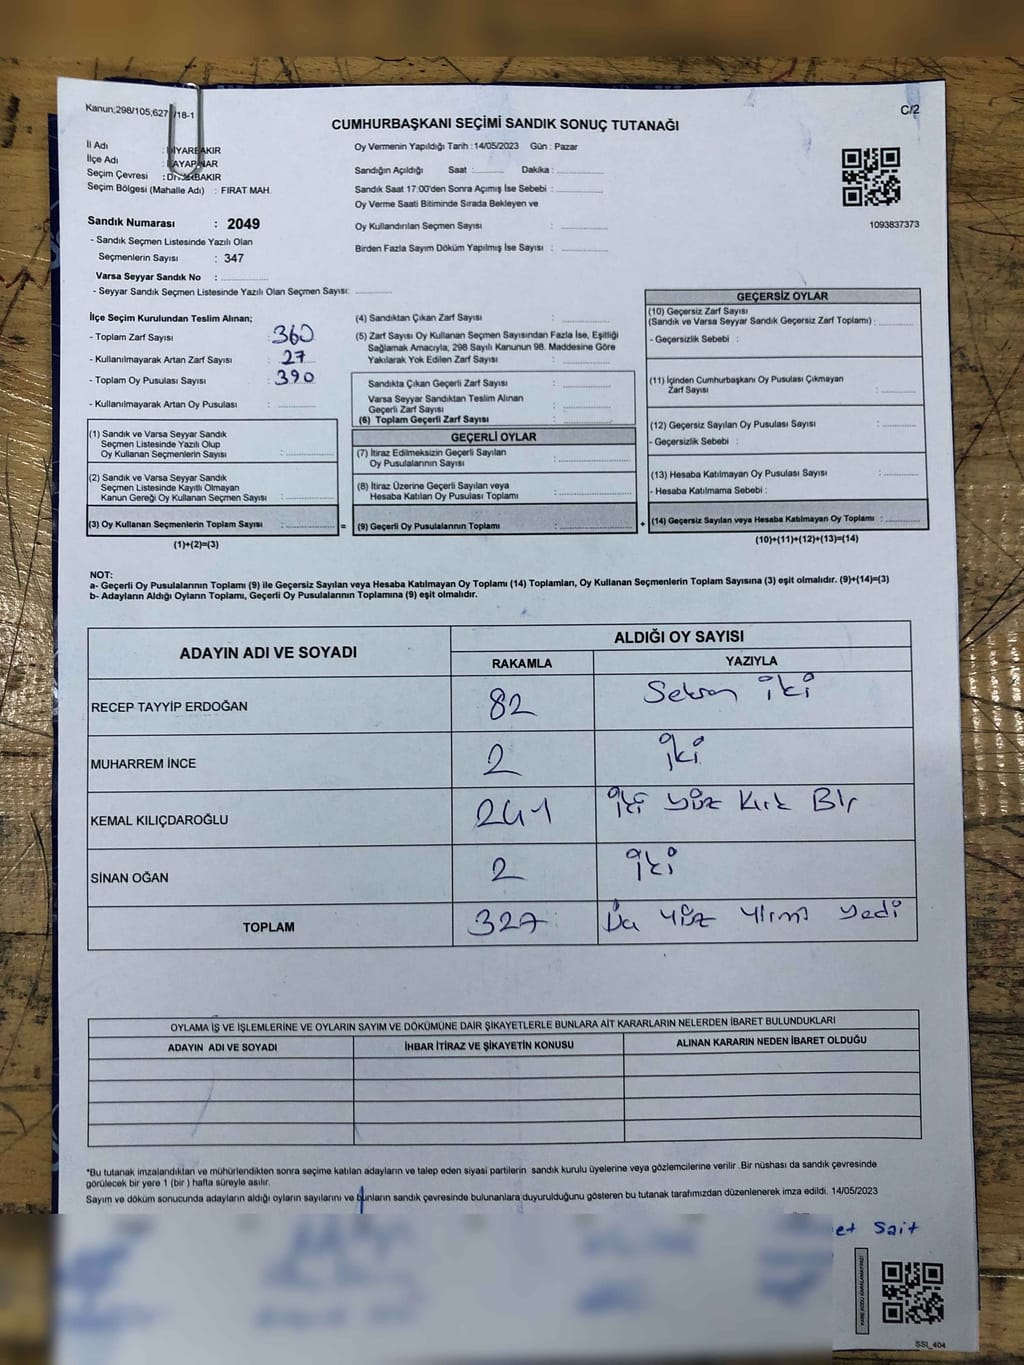 Kanun;298/105;627 /18-1
C/2
CUMHURBAŞKANI SEÇİMİ SANDIK SONUÇ TUTANAĞI
İl Adı : DİYARBAKIR
İlçe Adı : KAYAPINAR
Seçim Çevresi : DİYARBAKIR
Seçim Bölgesi (Mahalle Adı) : FIRAT MAH.
Sandık Numarası : 2049
- Sandık Seçmen Listesinde Yazılı Olan
Seçmenlerin Sayısı : 347
Varsa Seyyar Sandık No : ..............
- Seyyar Sandık Seçmen Listesinde Yazılı Olan Seçmen Sayısı: ..............
Oy Vermenin Yapıldığı Tarih :14/05/2023 Gün : Pazar
Sandığın Açıldığı Saat :............ Dakika :..............
Sandık Saat 17:00'den Sonra Açımış İse Sebebi : ..............
Oy Verme Saati Bitiminde Sırada Bekleyen ve
Oy Kullandırılan Seçmen Sayısı : ..............
Birden Fazla Sayım Döküm Yapılmış İse Sayısı : ..............
1093837373
İlçe Seçim Kurulundan Teslim Alınan;
- Toplam Zarf Sayısı : 360
- Kullanılmayarak Artan Zarf Sayısı : 27
- Toplam Oy Pusulası Sayısı : 390
- Kullanılmayarak Artan Oy Pusulası : ..............
(1) Sandık ve Varsa Seyyar Sandık
Seçmen Listesinde Yazılı Olup
Oy Kullanan Seçmenlerin Sayısı : ..............
(2) Sandık ve Varsa Seyyar Sandık
Seçmen Listesinde Kayıtlı Olmayan
Kanun Gereği Oy Kullanan Seçmen Sayısı : ..............
(3) Oy Kullanan Seçmenlerin Toplam Sayısı : .............. =
(1)+(2)=(3)
(4) Sandıktan Çıkan Zarf Sayısı : ..............
(5) Zarf Sayısı Oy Kullanan Seçmen Sayısından Fazla İse, Eşitliği
Sağlamak Amacıyla, 298 Sayılı Kanunun 98. Maddesine Göre
Yakılarak Yok Edilen Zarf Sayısı : ..............
Sandıkta Çıkan Geçerli Zarf Sayısı : ..............
Varsa Seyyar Sandıktan Teslim Alınan
Geçerli Zarf Sayısı : ..............
(6) Toplam Geçerli Zarf Sayısı : ..............
GEÇERLİ OYLAR
(7) İtiraz Edilmeksizin Geçerli Sayılan
Oy Pusulalarının Sayısı : ..............
(8) İtiraz Üzerine Geçerli Sayılan veya
Hesaba Katılan Oy Pusulası Toplamı : ..............
(9) Geçerli Oy Pusulalarının Toplamı : .............. +
GEÇERSİZ OYLAR
(10) Geçersiz Zarf Sayısı
(Sandık ve Varsa Seyyar Sandık Geçersiz Zarf Toplamı) : ..............
- Geçersizlik Sebebi :
(11) İçinden Cumhurbaşkanı Oy Pusulası Çıkmayan
Zarf Sayısı : ..............
(12) Geçersiz Sayılan Oy Pusulası Sayısı : ..............
- Geçersizlik Sebebi :
(13) Hesaba Katılmayan Oy Pusulası Sayısı : ..............
- Hesaba Katılmama Sebebi :
(14) Geçersiz Sayılan veya Hesaba Katılmayan Oy Toplamı : ..............
(10)+(11)+(12)+(13)=(14)
NOT:
a- Geçerli Oy Pusulalarının Toplamı (9) ile Geçersiz Sayılan veya Hesaba Katılmayan Oy Toplamı (14) Toplamları, Oy Kullanan Seçmenlerin Toplam Sayısına (3) eşit olmalıdır. (9)+(14)=(3)
b- Adayların Aldığı Oyların Toplamı, Geçerli Oy Pusulalarının Toplamına (9) eşit olmalıdır.
ADAYIN ADI VE SOYADI ALDIĞI OY SAYISI
RAKAMLA YAZIYLA
RECEP TAYYİP ERDOĞAN 82 Seksen iki
MUHARREM İNCE 2 iki
KEMAL KILIÇDAROĞLU 241 iki yüz Kırk Bir
SİNAN OĞAN 2 iki
TOPLAM 327 yüz yirmi yedi
OYLAMA İŞ VE İŞLEMLERİNE VE OYLARIN SAYIM VE DÖKÜMÜNE DAİR ŞİKAYETLERLE BUNLARA AİT KARARLARIN NELERDEN İBARET BULUNDUKLARI
ADAYIN ADI VE SOYADI İHBAR İTİRAZ VE ŞİKAYETİN KONUSU ALINAN KARARIN NEDEN İBARET OLDUĞU
*Bu tutanak imzalandıktan ve mühürlendikten sonra seçime katılan adayların ve talep eden siyasi partilerin sandık kurulu üyelerine veya gözlemcilerine verilir .Bir nüshası da sandık çevresinde
görülecek bir yere 1 (bir ) hafta süreyle asılır.
Sayım ve döküm sonucunda adayların aldığı oyların sayılarını ve bunların sandık çevresinde bulunanlara duyurulduğunu gösteren bu tutanak tarafımızdan düzenlenerek imza edildi. 14/05/2023
et Sait
SSI_404